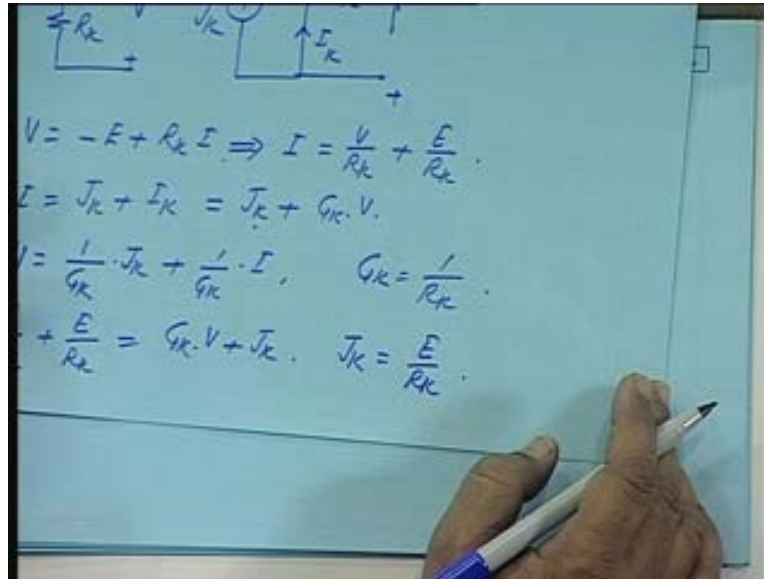 R_K
J_K
I_K
+
+
V = - E + R_K I ⇒ I = V/R_K + E/R_K .
I = J_K + I_K = J_K + G_K . V .
= 1/G_K . J_K + 1/G_K . I , G_K = 1/R_K .
+ E/R_K = G_K . V + J_K . J_K = E/R_K .